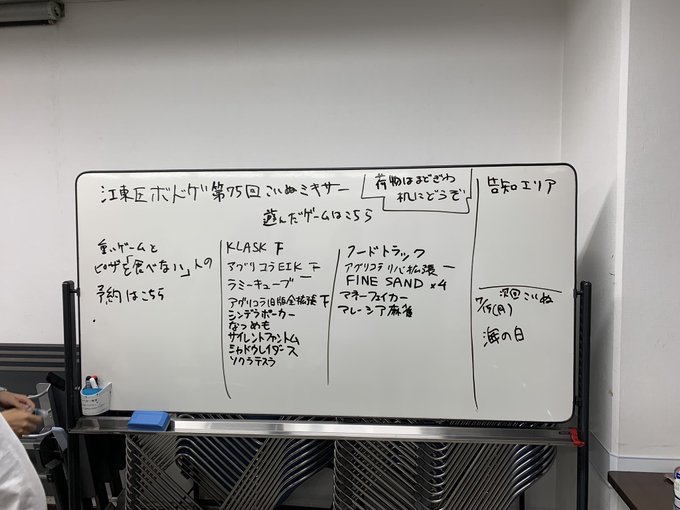 江東区ボドゲ第75回こいぬミキサー
荷物はまどぎわ
机にどうぞ
遊んだゲームはこちら
告知エリア
重いゲームと
ピザを「食べない」人の
予約はこちら
KLASK 下
アグリコラEIK 下
ラミーキューブ 一
アグリコラ旧版全拡張 下
シンデラポーカー
なつめも
サイレントファントム
シャドウレイダース
ソクラテスラ
フードトラック
アグリコラ リバ拡張 一
FINE SAND ×4
マネーフェイカー
マレーシア麻雀
次回こいぬ
7/15(月)
海の日